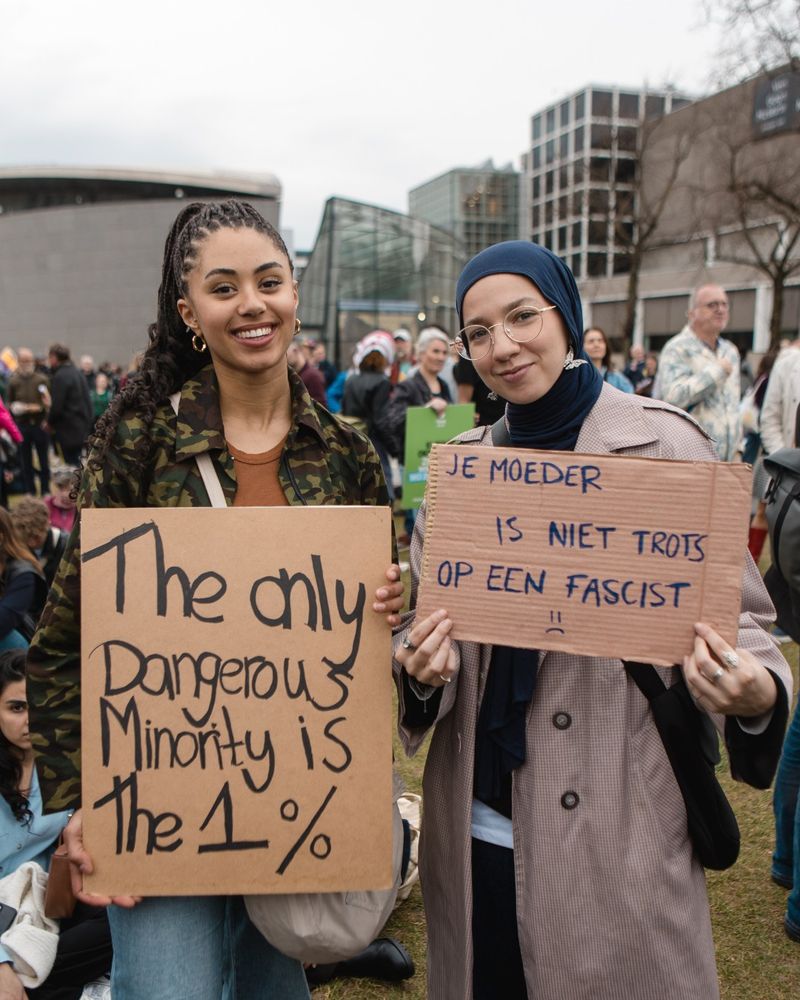 The only
Dangerous
Minority is
The 1 %
JE MOEDER
IS NIET TROTS
OP EEN FASCIST